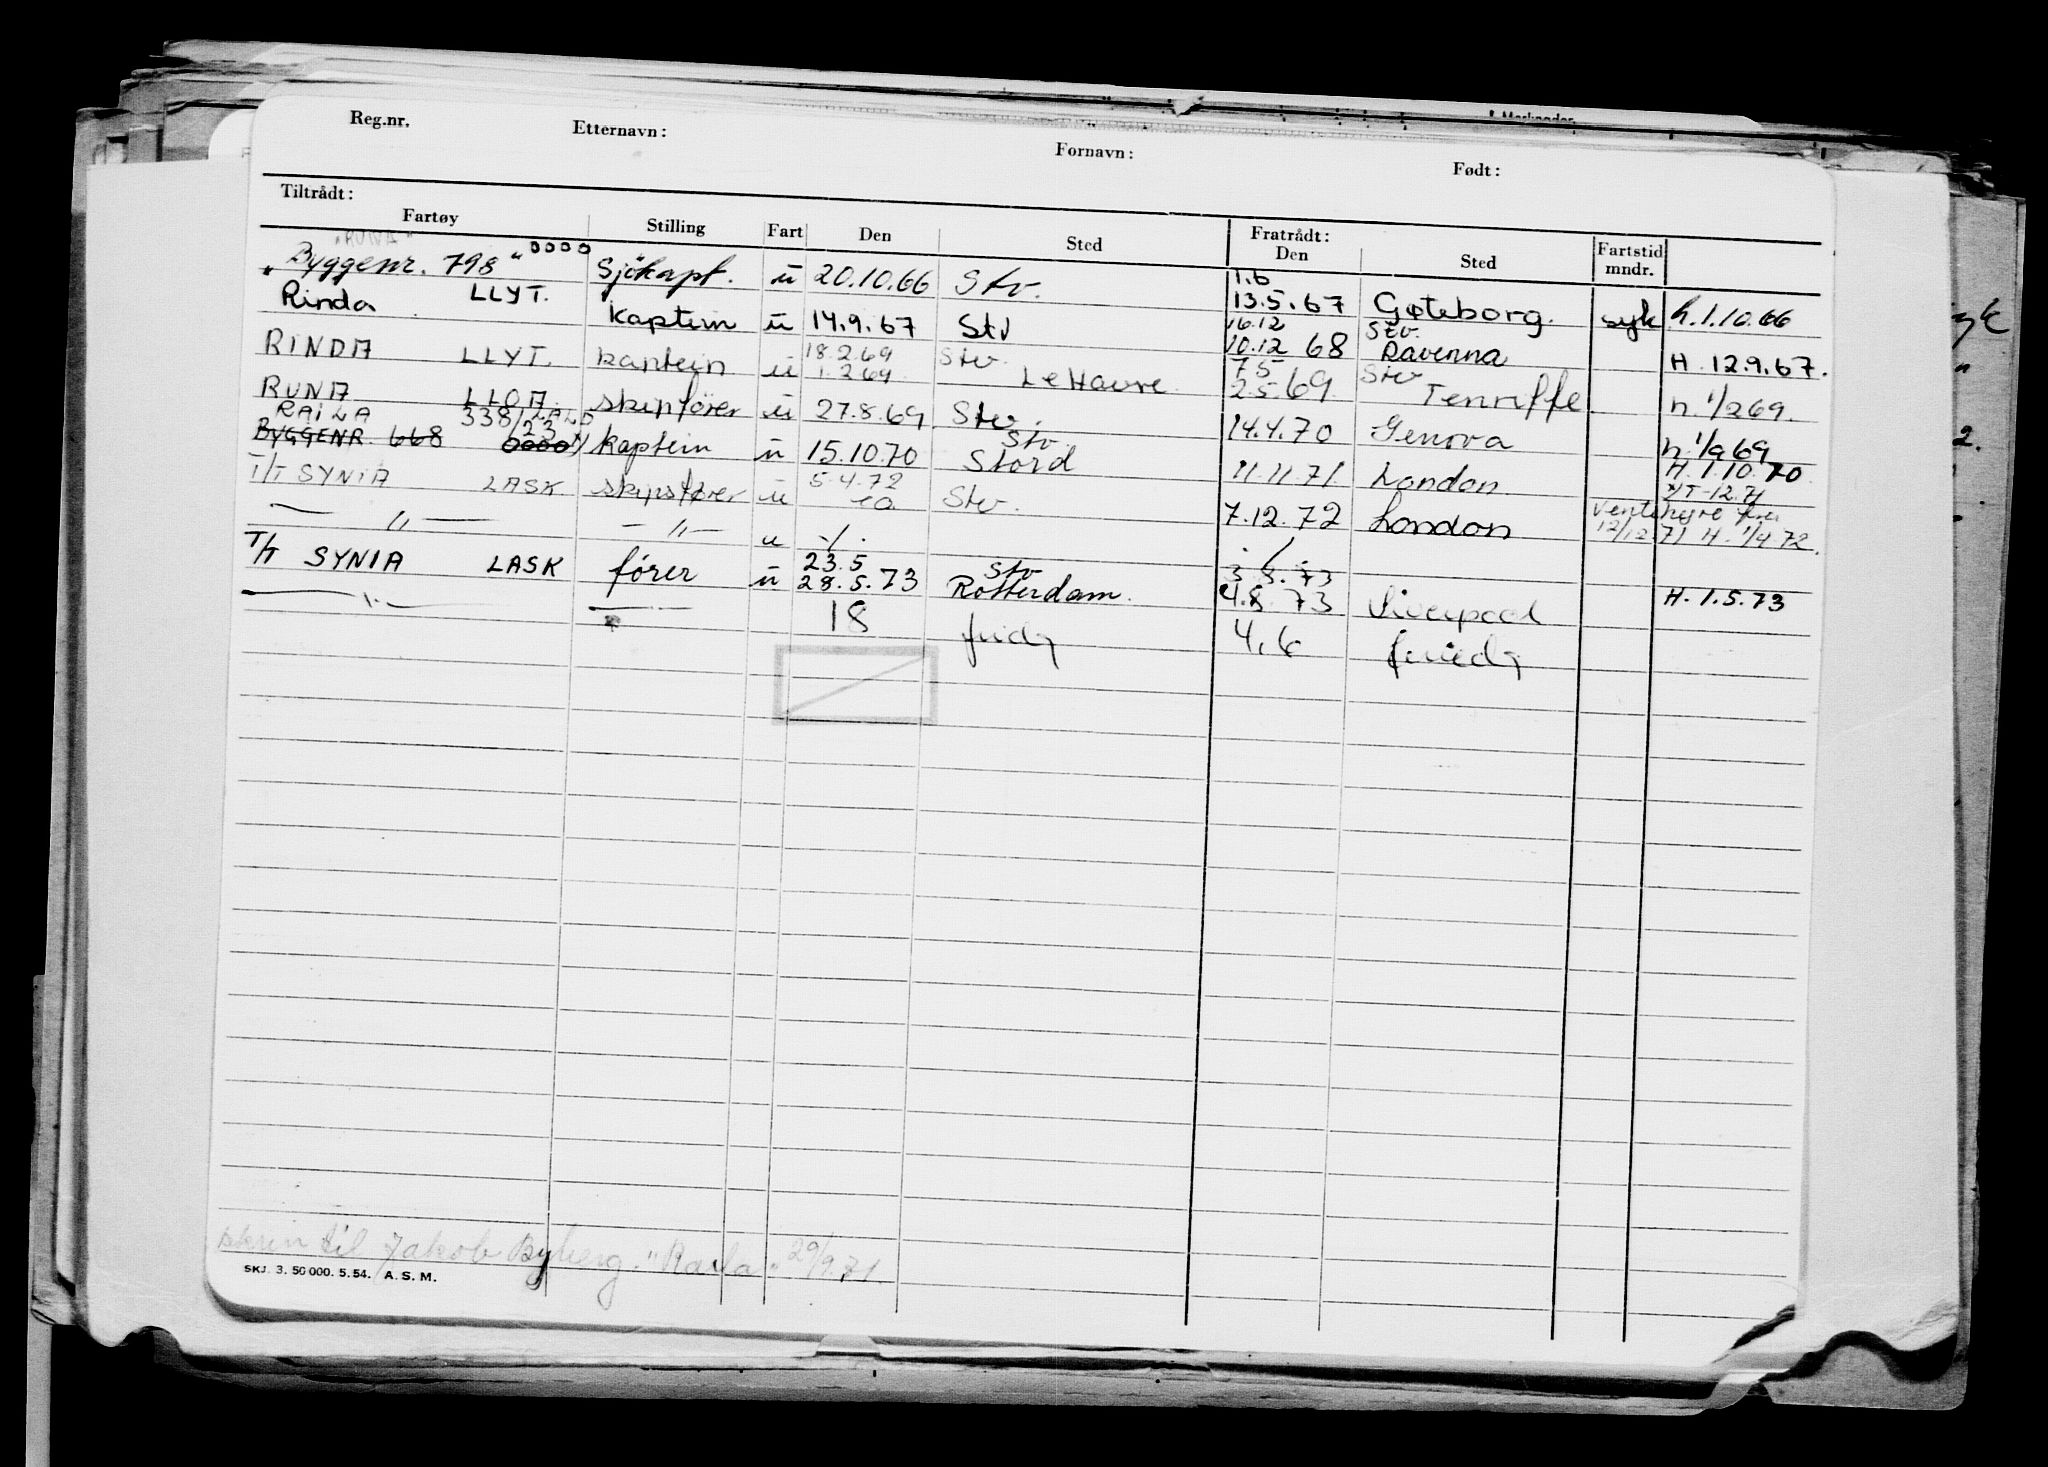 Reg.nr. Etternavn: Fornavn: Født:
Tiltrådt: Fratrådt:
Fartøy Stilling Fart Den Sted Den Sted Fartstid mndr.
"RUNA"
"Byggenr. 798" 0000 Sjökapt. u 20.10.66 Stv. 1.6 13.5.67 Gøteborg. syk h.1.10.66
Rinda LLYT. kaptein u 14.9.67 Stv 16.12 10.12 68 Stv. Ravenna H. 12.9.67.
RINDA LLYT. kaptein u 18.2.69 1.2.69 Stv. Le Havre. 7.5 2.5.69 Stv Tenriffe h. 1/2 69.
RUNA LLOA. skipsfører u 27.8.69 Stv. 14.4.70 Genova h. 1/9 69
RAILA 338/23 LALD
BYGGENR. 668 0000 kaptein u 15.10.70 Stv. Stord 11.11.71 London. H. 1.10.70
T/T SYNIA LASK skipsfører u 5.4.72 ca Stv. 7.12.72 London 12/12.71 H. 1/4 72.
— " — — " — u -/-
T/T SYNIA LASK fører u 23.5 28.5.73 Stv Rotterdam. 3.8.73 4.8.73 Liverpool H. 1.5.73
18 4.6
til Jakob Byberg. "Raila" 29/9.71
SKJ. 3. 50 000. 5. 54. A. S. M.